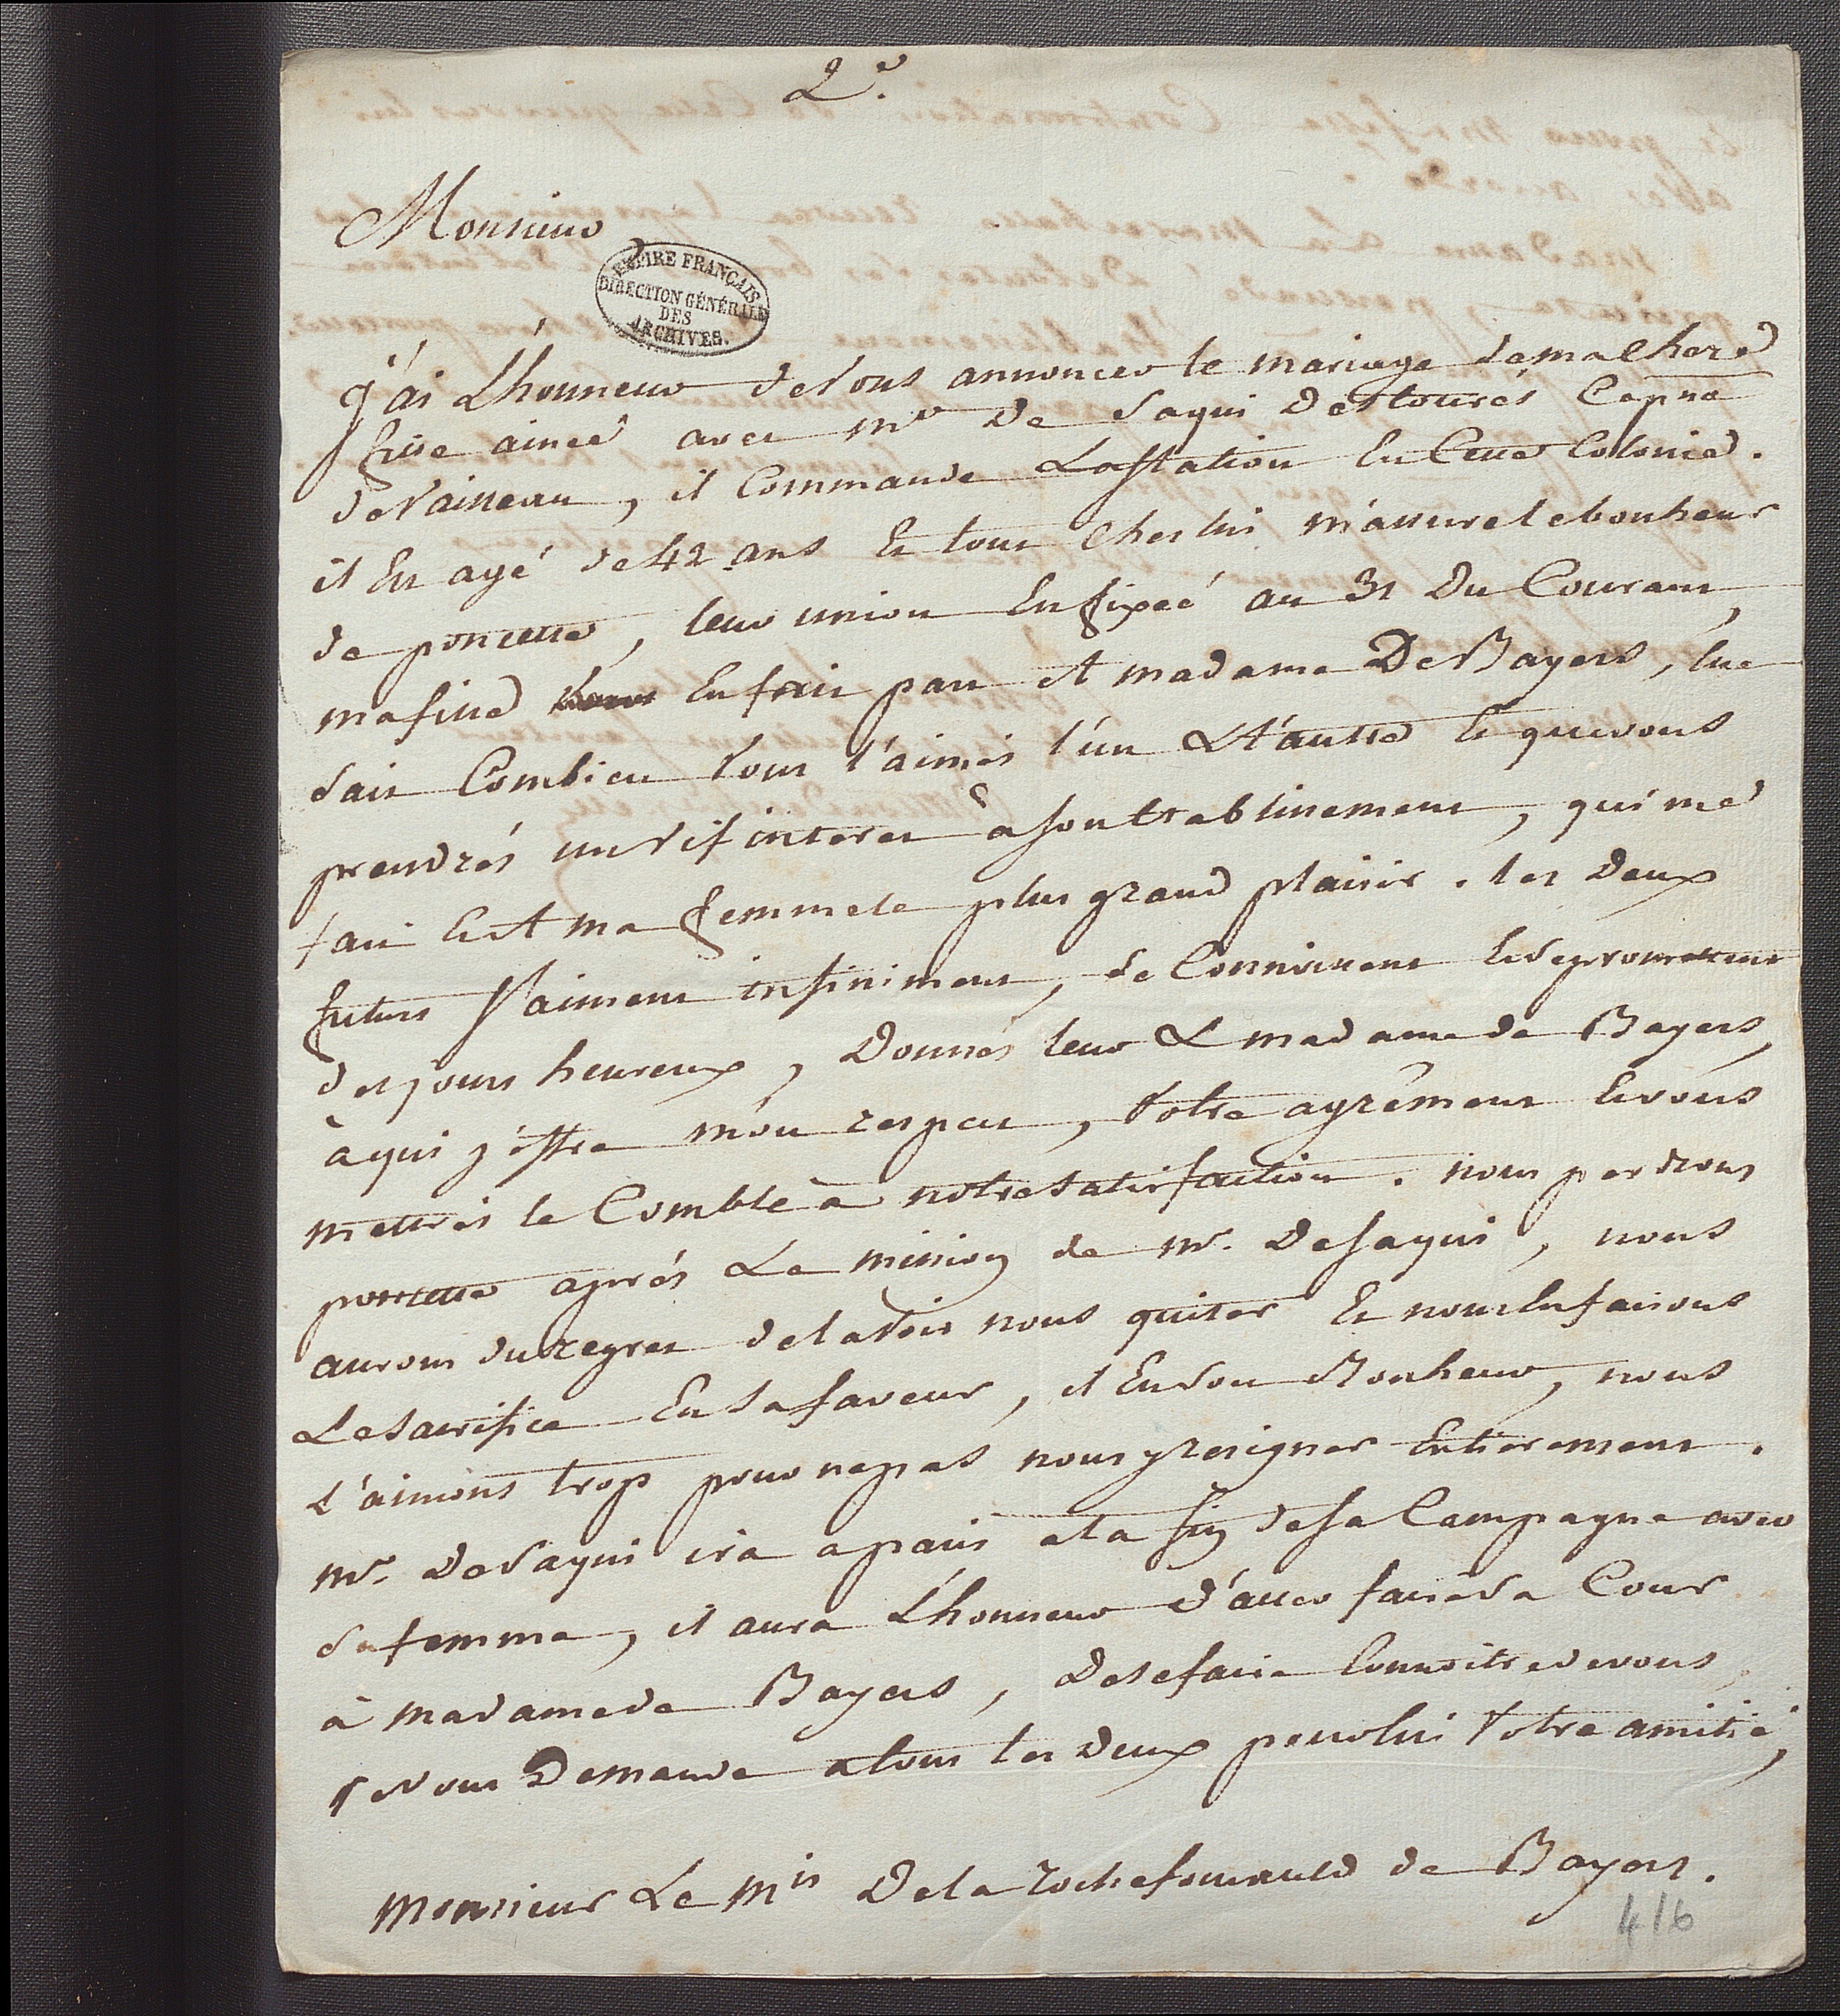 2e.
Monsieur
EMPIRE FRANÇAIS
DIRECTION GÉNÉRALE
DES
ARCHIVES.
J'ai L'honneur de Vous annoncer le mariage de ma Chere
fille ainée avec mr De Saqui Destourés Capne
de Vaisseau, il Commande La Station En Cette Colonie.
il Est agé de 42 ans Et tout Chez lui m'assure le bonheur
de poncette, leur union Est fixée au 31 Du Courant,
ma fille En fait part et madame De Bayers, Elle
sait Combien Vous l'aimés l'un Et l'autre Et que vous
prendrés un Vif interet à son Etablissement, qui me
fait Et A ma femme le plus grand plaisir. les Deux
futurs S'aiment infiniment, se Connoissent Et se promettent
des jours heureux, Donnés leur & madame de Bayers,
à qui j'offre mon respect, Votre agrément Et vous
mettrés le Comble à notre satisfaction. nous perdrons
poncette aprés La mission de mr. De Saqui, nous
aurons du regret de la Voir nous quiter Et nous En faisons
Le sacrifice En sa faveur, il Est son Bonheur, nous
L'aimons trop pour ne pas nous y resigner Entierement.
mr. De Saqui ira a paris a la fin de sa Campagne avec
sa femme, il aura L'honneur d'aller faire sa Cour
à madame de Bayers, De se faire Connoitre de vous,
je Vous Demande a tous les Deux pour lui Votre amitié,
Monsieur Le Mis De la rochefoucauld de Bayers.
416